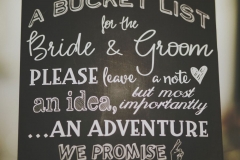 A BUCKET LIST
for the
Bride & Groom
PLEASE leave a note
an idea, but most
importantly
...AN ADVENTURE
WE PROMISE